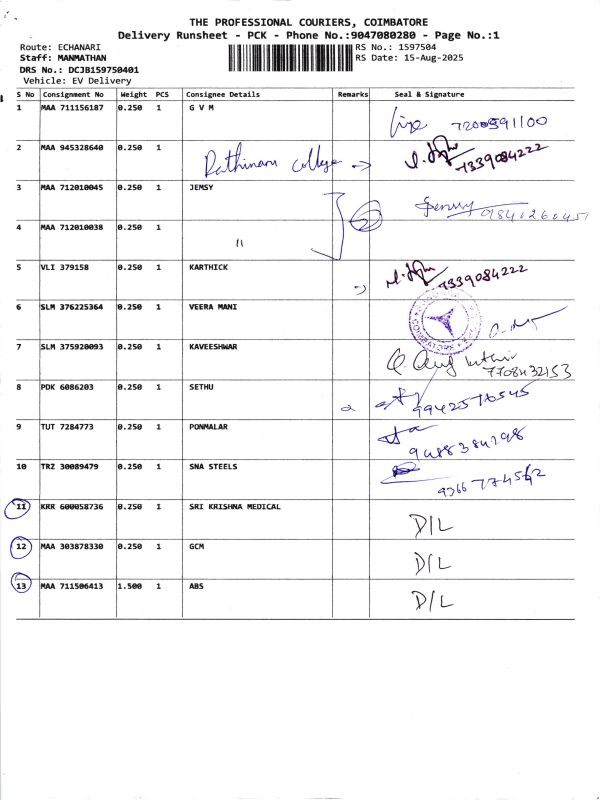 THE PROFESSIONAL COURIERS, COIMBATORE
Delivery Runsheet - PCK - Phone No.:9047080280 - Page No.:1
Route: ECHANARI RS No.: 1597504
Staff: MANMATHAN RS Date: 15-Aug-2025
DRS No.: DCJB159750401
Vehicle: EV Delivery
S No Consignment No Weight PCS Consignee Details Remarks Seal & Signature
1 MAA 711156187 0.250 1 G V M
2 MAA 945328640 0.250 1 Rathinam College → 7339084222
3 MAA 712010045 0.250 1 JEMSY 9840260451
4 MAA 712010038 0.250 1 "
5 VLI 379158 0.250 1 KARTHICK 7339084222
6 SLM 376225364 0.250 1 VEERA MANI
7 SLM 375920093 0.250 1 KAVEESHWAR 7708432153
8 PDK 6086203 0.250 1 SETHU
9 TUT 7284773 0.250 1 PONMALAR
10 TRZ 30089479 0.250 1 SNA STEELS
11 KRR 600058736 0.250 1 SRI KRISHNA MEDICAL D/L
12 MAA 303878330 0.250 1 GCM D/L
13 MAA 711506413 1.500 1 ABS D/L